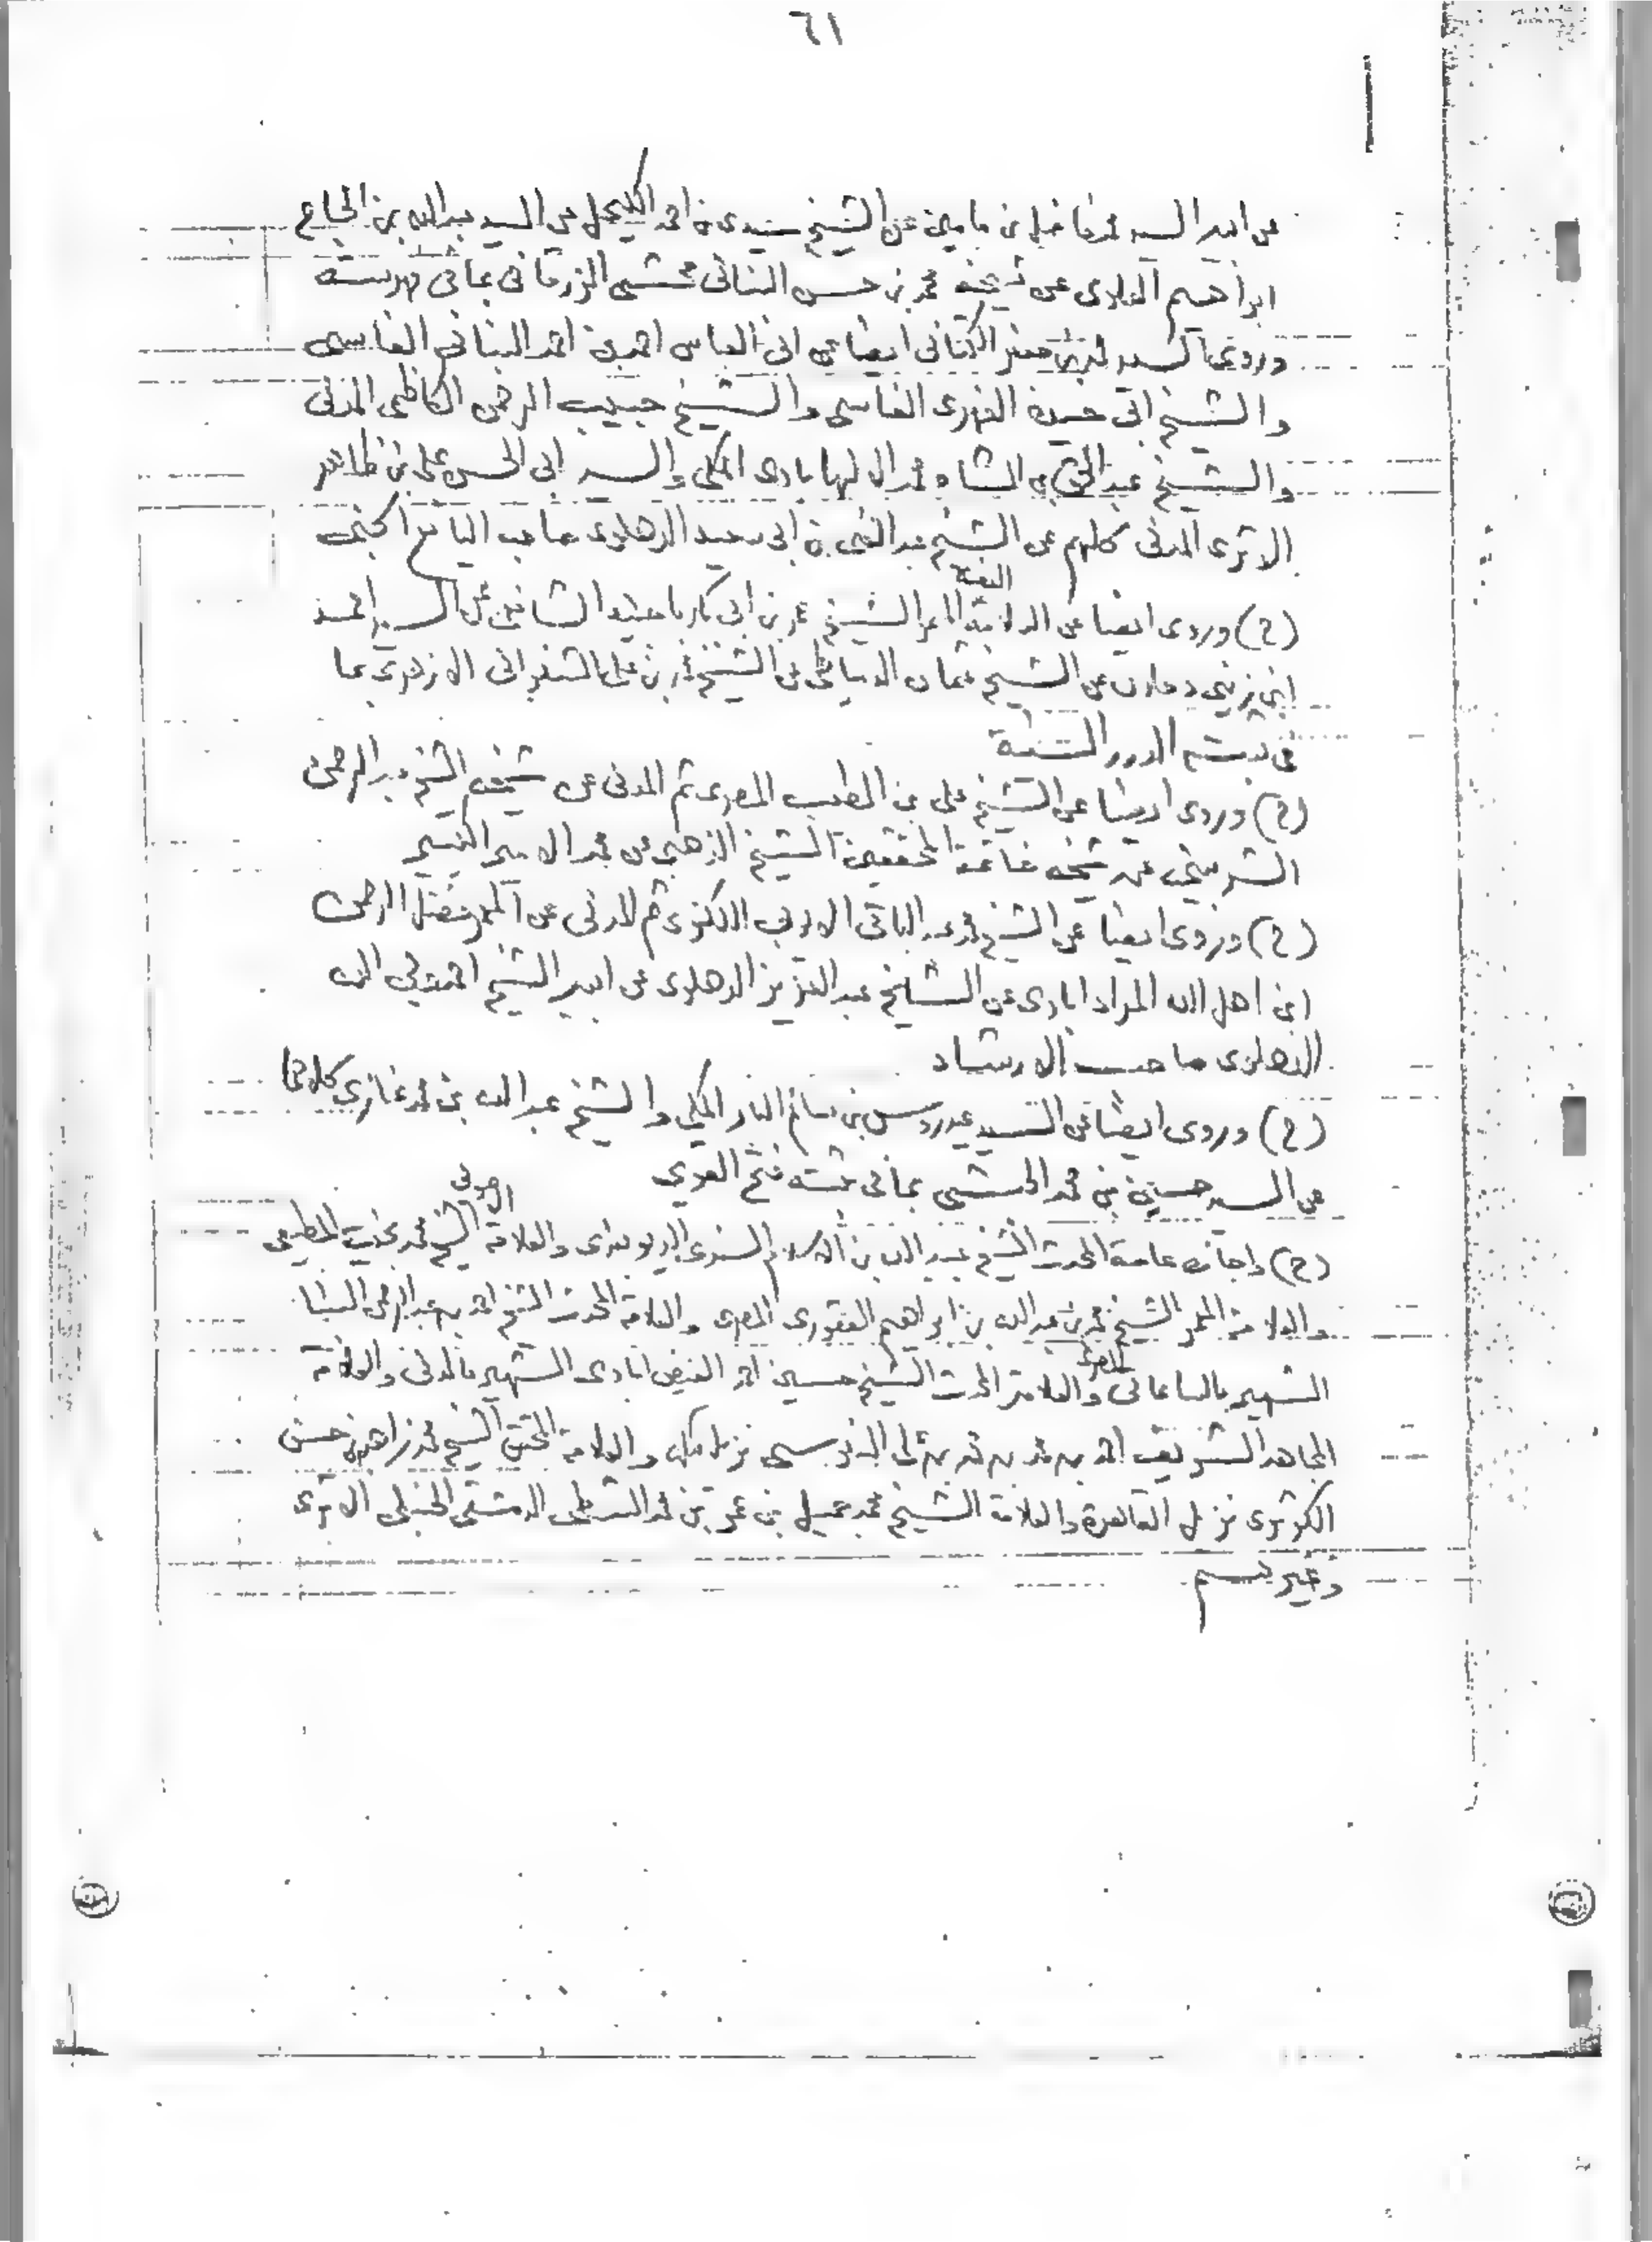 ٦١
عن ابيه السيد محمد فاضل بن مامين عن الشيخ سيدى احمد عن السيد عبد الله بن الحاج
ابراهيم العلوى عن شيخه محمد بن حسن البنانى محشى الزرقانى بما فى فهرسته
وروى السيد محمد بن جعفر الكتانى ايضا عن ابى العباس احمد بن احمد البنانى الفاسى
والشيخ ابى جيدة الفهرى الفاسى والشيخ حبيب الرحمن الكاظمى المدنى
والشيخ عبد الحق بن الشاه محمد الالهابادى المكى والسيد ابى الحسن على بن ظاهر
الوترى المدنى كلهم عن الشيخ عبد الغنى بن ابى سعيد الدهلوى صاحب اليانع الجنى
(ح) وروى ايضا عن العلامة الفقيه المعمر الشيخ عمر بن ابى بكر باجنيد الشافعى عن السيد احمد
ابن زينى دحلان عن الشيخ عثمان الدمياطى عن الشيخ محمد بن على الشنوانى الازهرى بما
فى ثبته الدرر السنية
(ح) وروى ايضا عن الشيخ على بن الطيب المصرى ثم المدنى عن شيخه الشيخ عبد الرحمن
الشربينى عن شيخه خاتمة المحققين الشيخ الذهبى عن محمد الامير الكبير
(ح) وروى ايضا عن الشيخ محمد عبد الباقى الايوبى اللكنوى ثم المدنى عن المعمر فضل الرحمن
ابن اهل الله المرادابادى عن الشيخ عبد العزيز الدهلوى عن ابيه الشيخ احمد ولى الله
الدهلوى صاحب الارشاد
(ح) وروى ايضا عن السيد عيدروس بن سالم البار المكى والشيخ عبد الله بن محمد غازى كلاهما
عن السيد حسين بن محمد الحبشى بما فى ثبته فتح القوى
(ح) واجازه عامة المحدث الشيخ عبيد الله بن الاسلام السندى الديوبندى والعلامة الشيخ محمد بخيت المطيعى
والعلامة المعمر الشيخ محمد بن عبد الله بن ابراهيم العقورى المصرى والعلامة المحدث الشيخ احمد بن عبد الرحمن البنا
الشهير بالساعاتى المصرى والعلامة المحدث الشيخ حسين احمد الفيض ابادى الشهير بالمدنى والعلامة
المجاهد الشريف احمد بن محمد بن محمد بن على السنوسى نزيل مكة والعلامة المحقق الشيخ محمد زاهد بن حسن
الكوثرى نزيل القاهرة والعلامة الشيخ محمد جميل بن عمر بن محمد الشطى الدمشقى الحنبلى الاثرى
وغيرهم